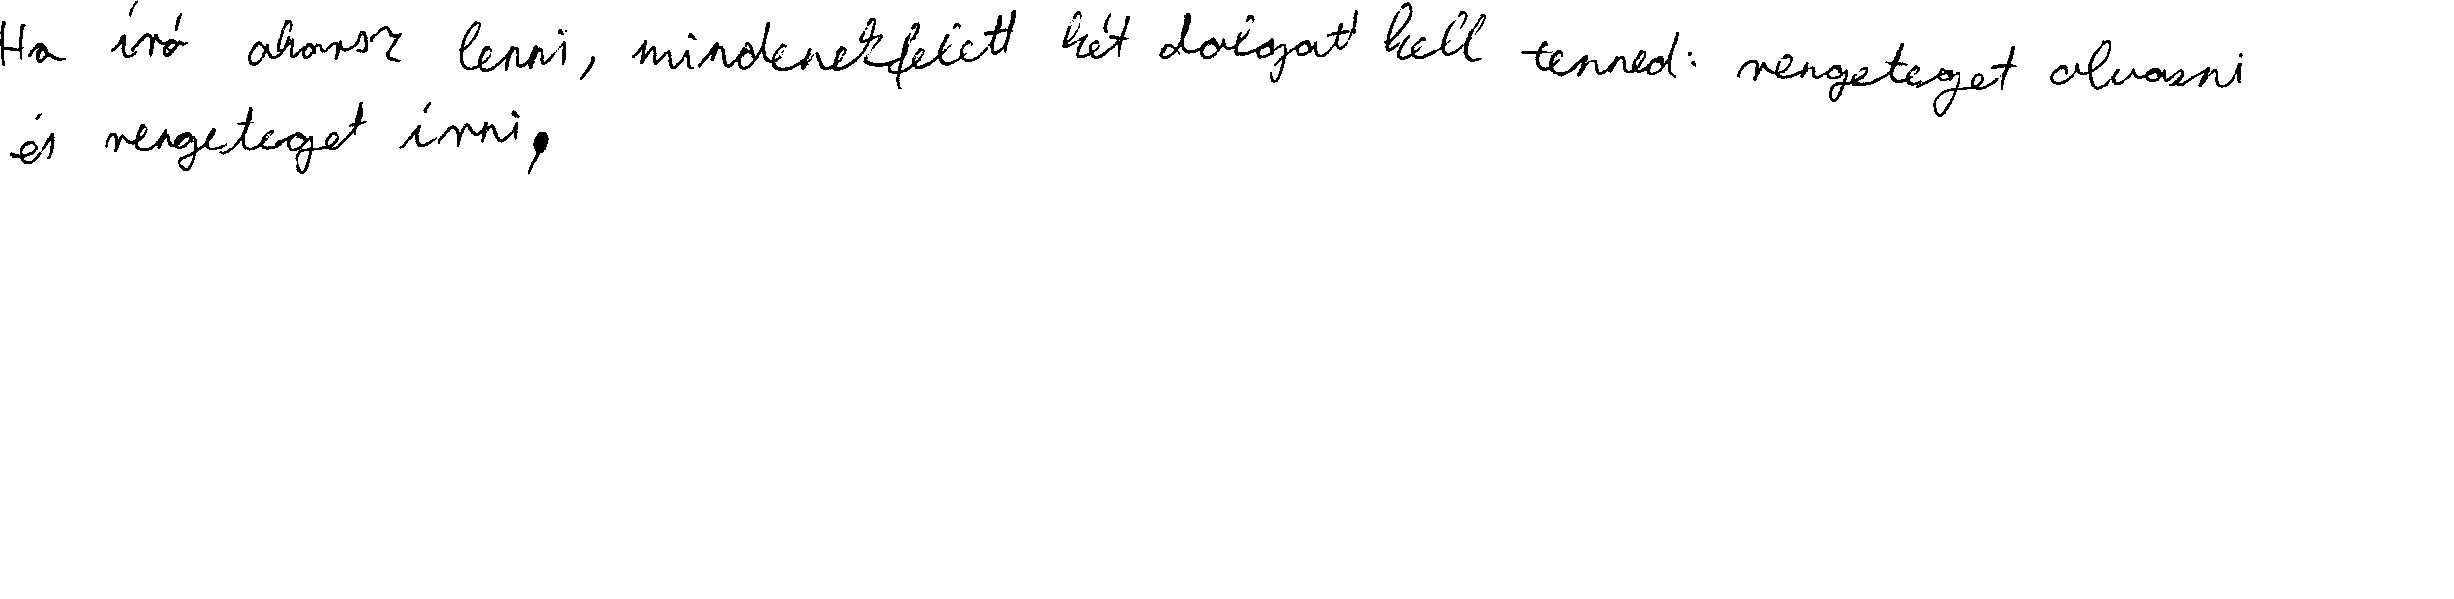 Ha író akarsz lenni, mindenekfelett két dolgot kell tenned: rengeteget olvasni
és rengeteget írni,